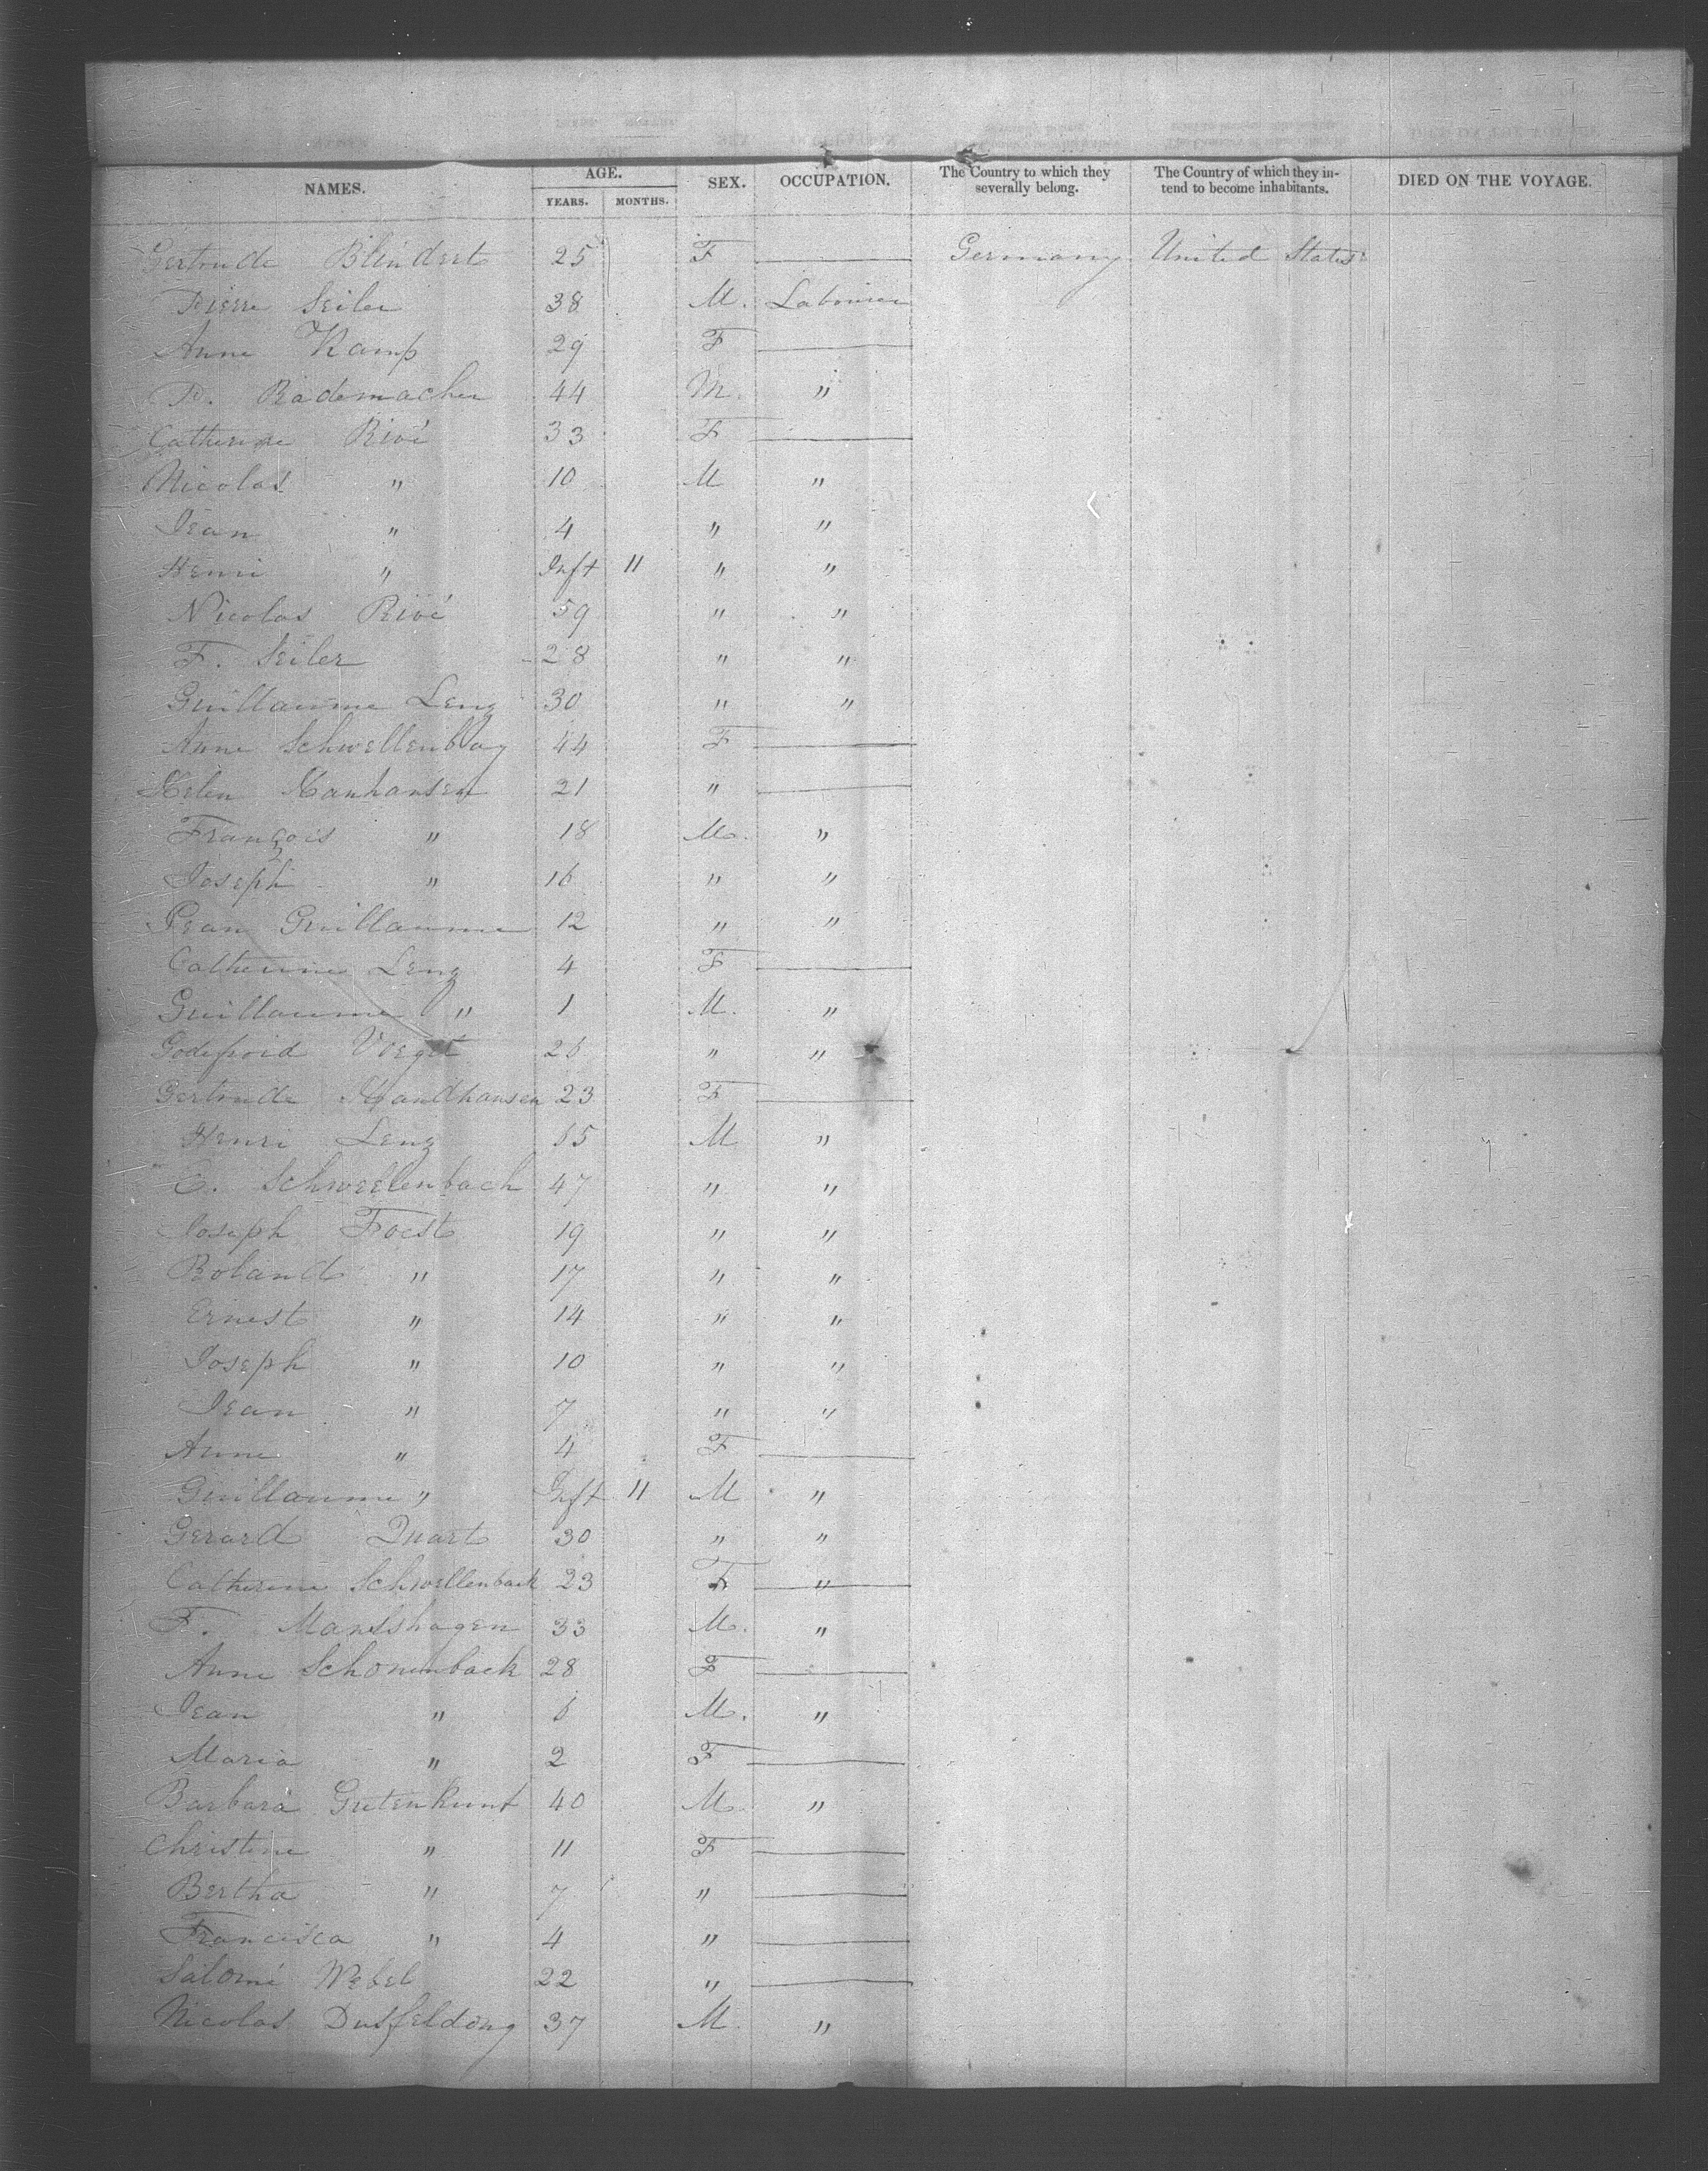 NAMES. AGE. YEARS. MONTHS. SEX. OCCUPATION. The Country to which they severally belong. The Country of which they intend to become inhabitants. DIED ON THE VOYAGE.
Gertrude Blindert 25 F — Germany United States
Pierre Seiler 38 M. Labourer
Anne Kamp 29 F —
P. Rademacher 44 M. "
Catherine Rivé 33 F —
Nicolas " 10 M "
Jean " 4 " "
Henri " Inft 11 " "
Nicolas Rivé 59 " "
F. Seiler 28 " "
Guillaume Leng 30 " "
Anne Schwellenbay 44 F —
Helen Manhansen 21 " —
François " 18 M. "
Joseph " 16 " "
Jean Guillaume 12 " "
Catherine Leng 4 F —
Guillaume " 1 M. "
Godefroid Voegt 26 " "
Gertrude Mandhausen 23 F —
Henri Leng 15 M "
E. Schwellenbach 47 " "
Joseph Foest 19 " "
Roland " 17 " "
Ernest " 14 " "
Joseph " 10 " "
Jean " 7 " "
Anne " 4 F —
Guillaume " Inft 11 M "
Gerard Quart 30 " "
Catherine Schwellenback 23 F "
F. Manshagen 33 M. "
Anne Schonenback 28 F —
Jean " 6 M. "
Maria " 2 F —
Barbara Gutenkunt 40 M. "
Christine " 11 F —
Bertha " 7 " —
Francisca " 4 " —
Salomé Webel 22 " —
Nicolas Dusfeldong 37 M. "